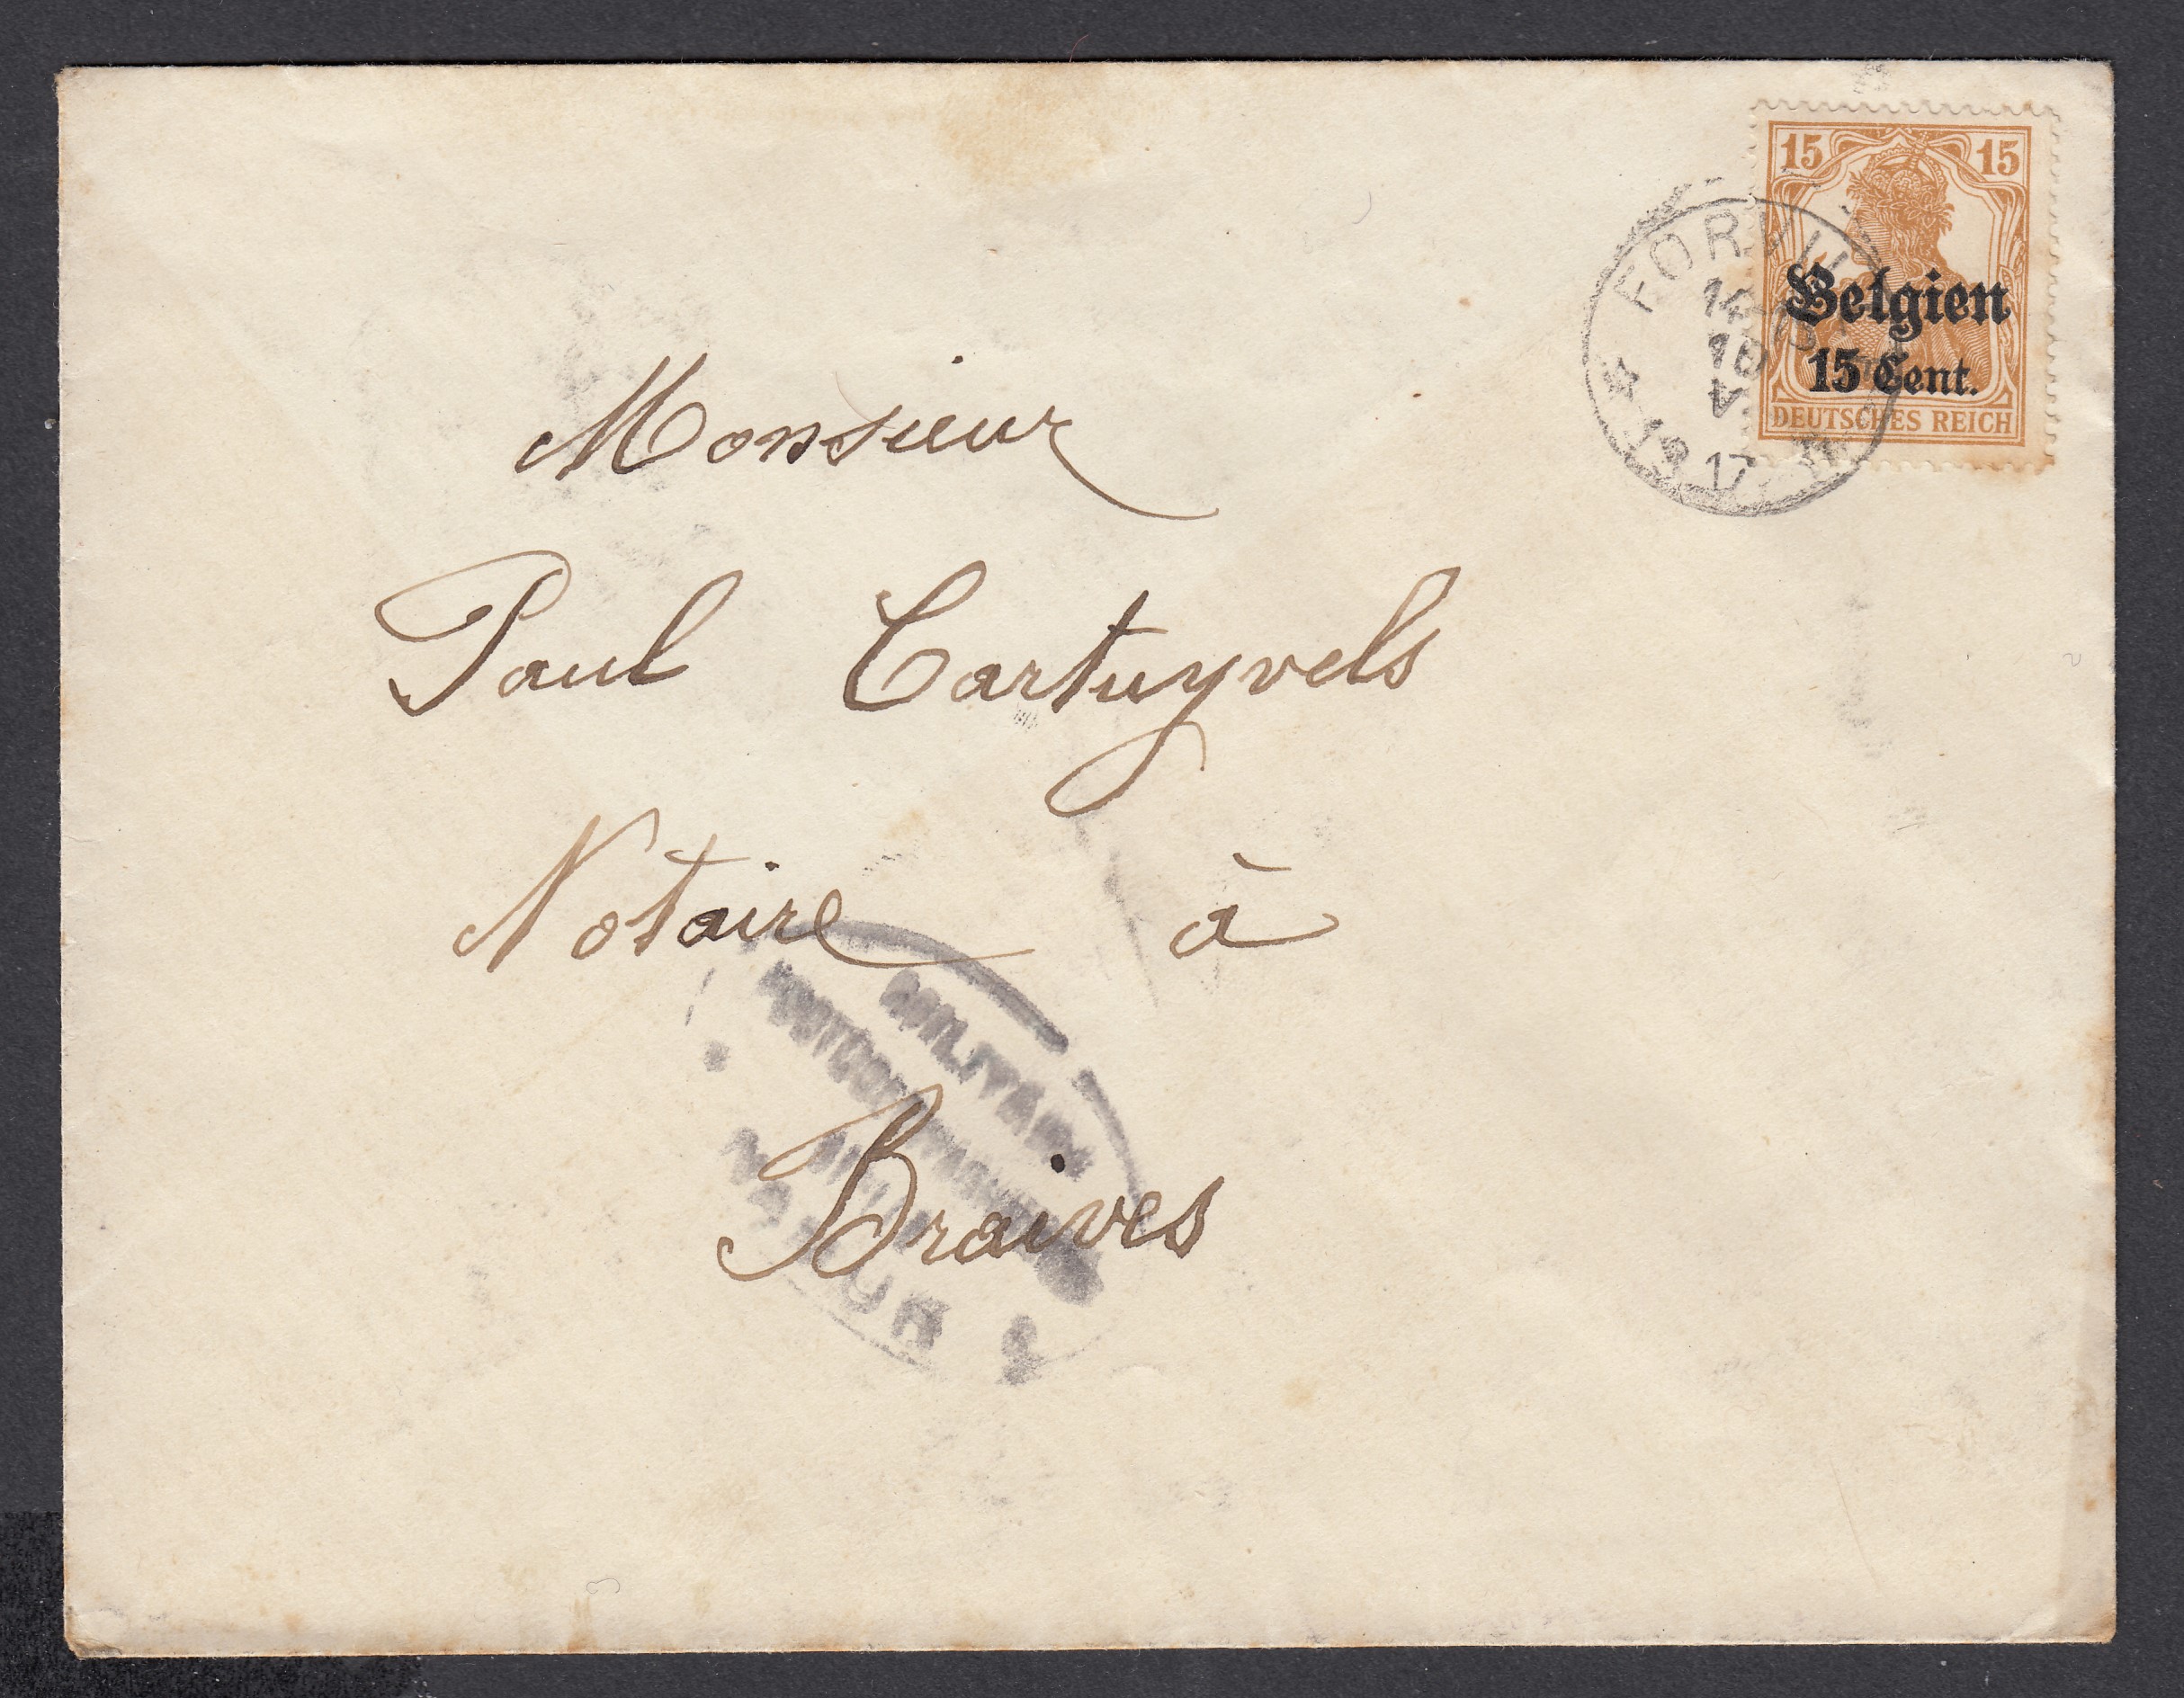 15 15
Belgien
15 Cent.
DEUTSCHES REICH
1917
Monsieur
Paul Cartuyvels
Notaire à
Braives
MILITÄR